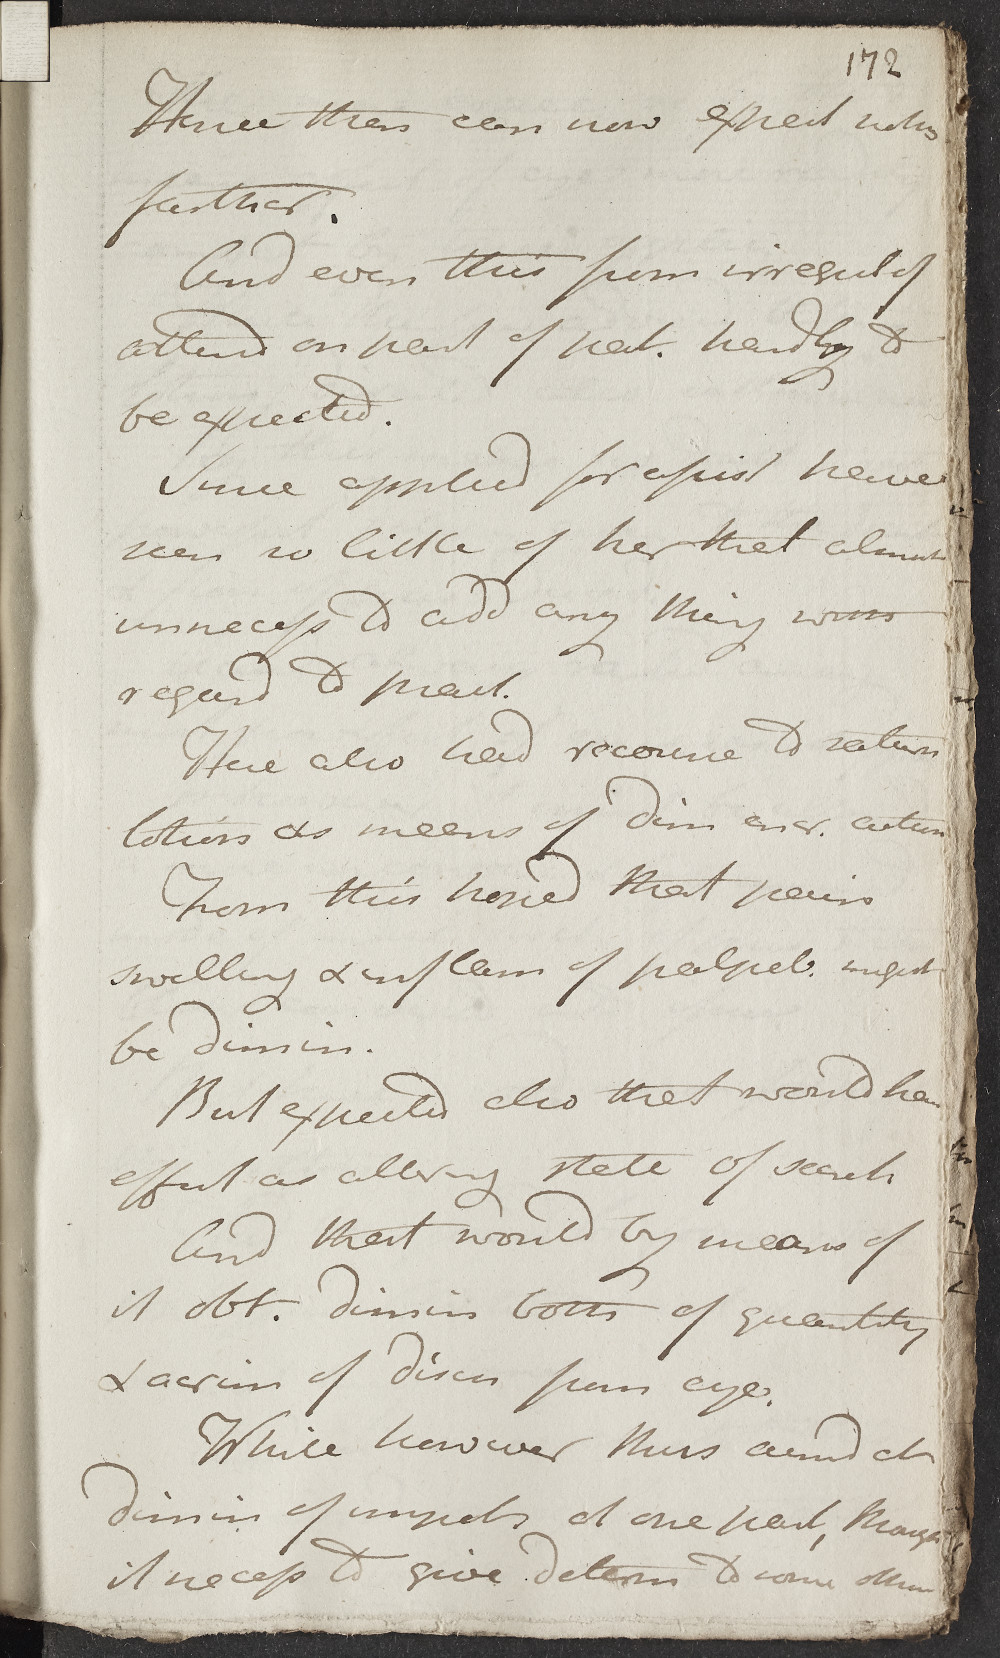 172
Hence then can now expect noth
further.
And even this from irregul of
attend on part of pat. hardly to
be expected.
Since applied for assist have
seen so little of her that almost
unnecess to add any thing with
regard to pract.
Here also had recourse to saturn
lotion as means of dimin incr. action
From this hoped that pain
swelling & inflam of palpeb. might
be dimin.
But expected also that would have
effect as altering state of secret
And that would by means of
it obt. dimin both of quantity
& acrim of disch from eye.
While however thus aimd at
dimin of impet at one part, thought
it necess to give determ to some other